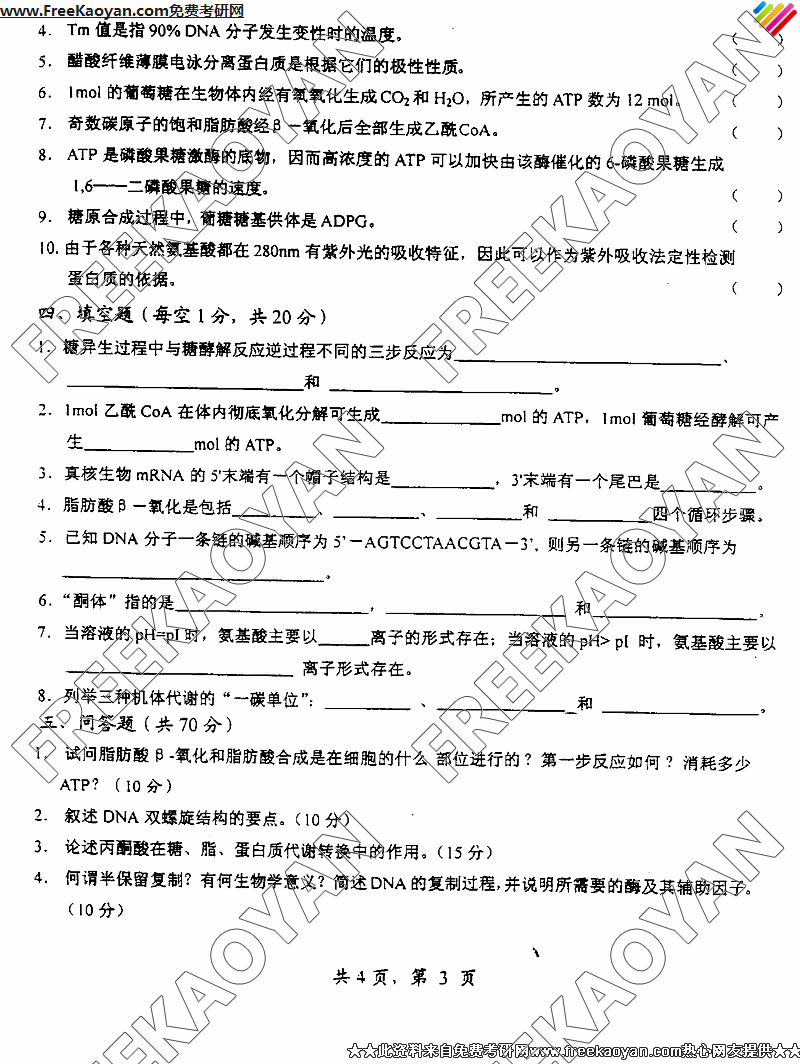 www.FreeKaoyan.com免费考研网
4. Tm 值是指 90% DNA 分子发生变性时的温度。 ( )
5. 醋酸纤维薄膜电泳分离蛋白质是根据它们的极性性质。 ( )
6. 1mol 的葡萄糖在生物体内经有氧氧化生成 CO₂ 和 H₂O，所产生的 ATP 数为 12 mol。 ( )
7. 奇数碳原子的饱和脂肪酸经β－氧化后全部生成乙酰CoA。 ( )
8. ATP 是磷酸果糖激酶的底物，因而高浓度的 ATP 可以加快由该酶催化的 6-磷酸果糖生成
1,6——二磷酸果糖的速度。 ( )
9. 糖原合成过程中，葡糖糖基供体是 ADPG。 ( )
10. 由于各种天然氨基酸都在 280nm 有紫外光的吸收特征，因此可以作为紫外吸收法定性检测
蛋白质的依据。 ( )
四、填空题（每空 1 分，共 20 分）
1. 糖异生过程中与糖酵解反应逆过程不同的三步反应为____________、
____________和____________。
2. 1mol 乙酰 CoA 在体内彻底氧化分解可生成____________mol 的 ATP，1mol 葡萄糖经酵解可产
生____________mol 的 ATP。
3. 真核生物 mRNA 的 5'末端有一个帽子结构是____________，3'末端有一个尾巴是____________。
4. 脂肪酸β－氧化是包括________、________、________和________四个循环步骤。
5. 已知 DNA 分子一条链的碱基顺序为 5'－AGTCCTAACGTA－3'，则另一条链的碱基顺序为
____________。
6. “酮体”指的是____________，____________和____________。
7. 当溶液的 pH=pI 时，氨基酸主要以______离子的形式存在；当溶液的 pH> pI 时，氨基酸主要以
____________离子形式存在。
8. 列举三种机体代谢的“一碳单位”：________、____________和____________。
五、问答题（共 70 分）
1. 试问脂肪酸β-氧化和脂肪酸合成是在细胞的什么 部位进行的？第一步反应如何？消耗多少
ATP？（10 分）
2. 叙述 DNA 双螺旋结构的要点。（10 分）
3. 论述丙酮酸在糖、脂、蛋白质代谢转换中的作用。（15 分）
4. 何谓半保留复制？有何生物学意义？简述 DNA 的复制过程，并说明所需要的酶及其辅助因子。
（10 分）
共 4 页，第 3 页
★★此资料来自免费考研网www.freekaoyan.com热心网友提供★★
FREEKAOYAN
FREEKAOYAN
FREEKAOYAN
FREEKAOYAN
FREEKAOYAN
FREEKAOYAN